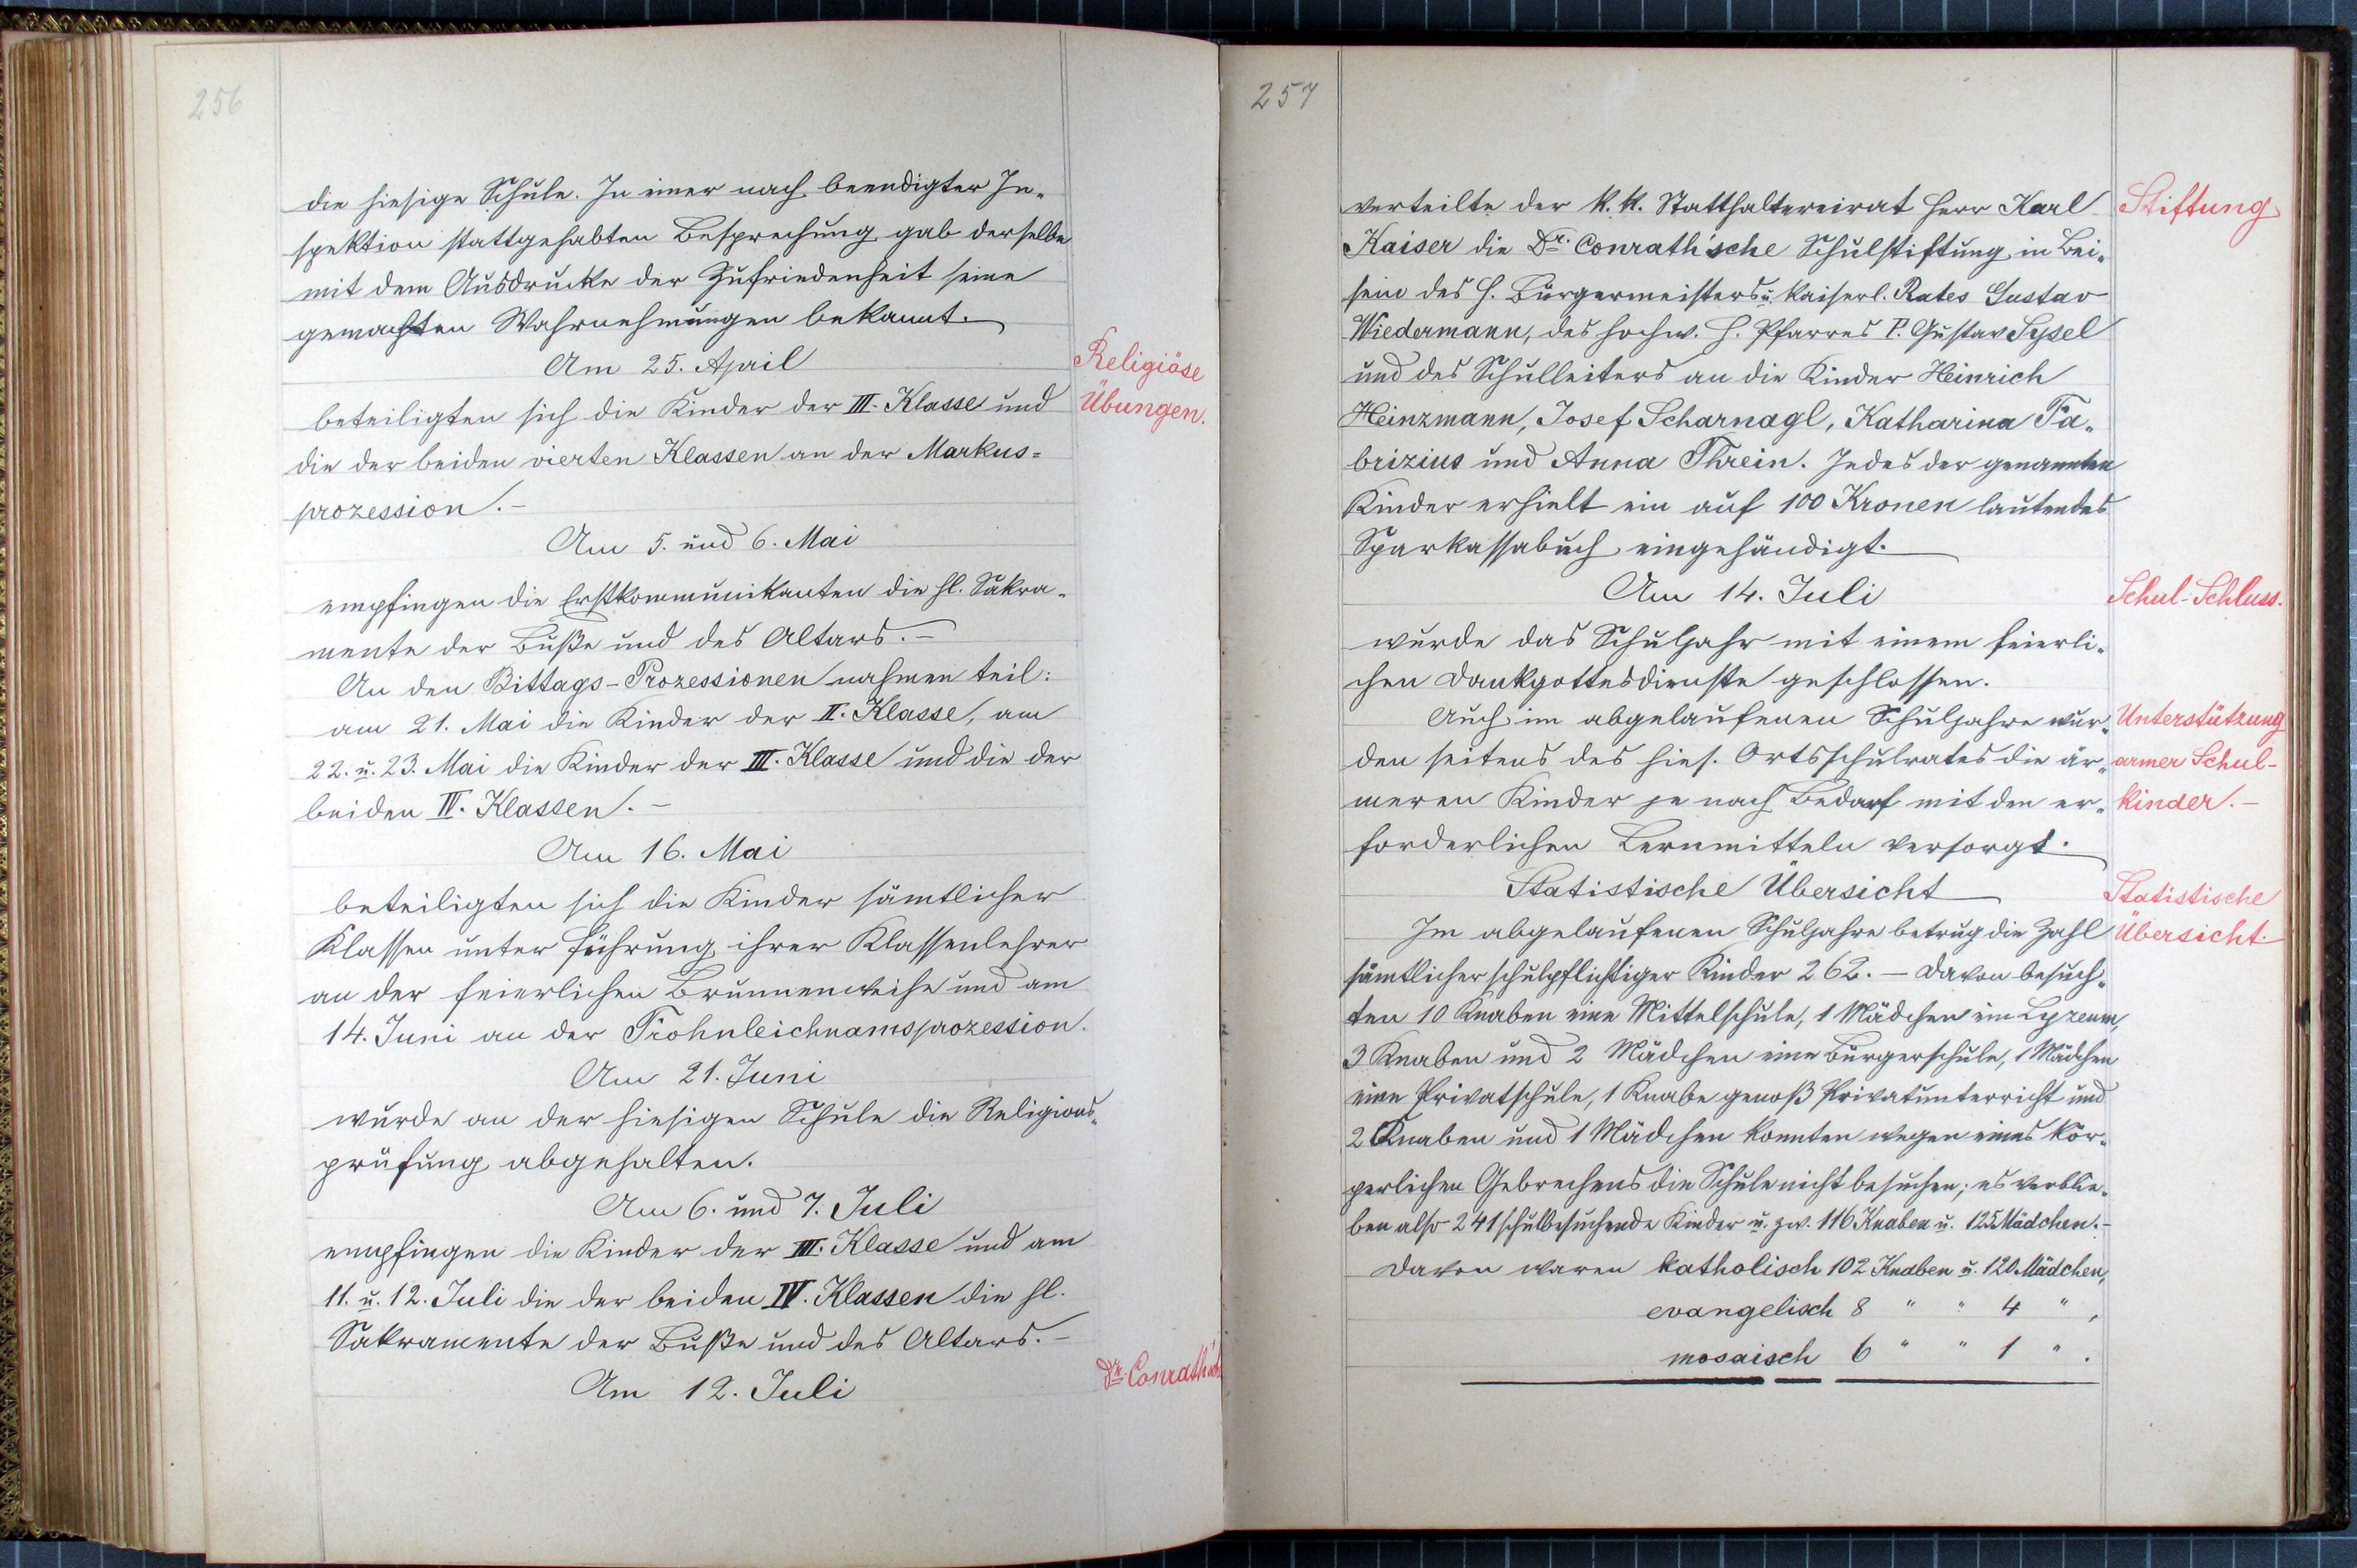 256
die hiesige Schule. In einer nach beendigter In-
spektion stattgehabten Besprechung gab derselbe
mit dem Ausdrucke der Zufriedenheit seine
gemachten Wahrnehmungen bekannt.
Am 25. April
Religiöse
beteiligten sich die Kinder der III. Klasse und
Übungen.
die der beiden vierten Klassen an der Markus=
prozession.-
Am 5. und 6. Mai
empfingen die Erstkommunikanten die hl. Sakra-
mente der Buße und des Altars.-
An den Bittags-Prozessionen nahmen teil:
am 21. Mai die Kinder der II. Klasse, am
22. u. 23. Mai die Kinder der III. Klasse und die der
beiden IV. Klassen.-
Am 16. Mai
beteiligten sich die Kinder sämtlicher
Klassen unter Führung ihrer Klassenlehrer
an der feierlichen Brunnenweihe und am
14. Juni an der Frohnleichnamsprozession.
Am 21. Juni
wurde an der hiesigen Schule die Religions-
prüfung abgehalten.
Am 6. und 7. Juli
empfingen die Kinder der III. Klasse und am
11. u. 12. Juli die der beiden IV. Klassen die hl.
Sakramente der Buße und des Altars.-
Dr. Conrath'sche
Am 12. Juli
257
verteilte der k. k. Statthaltereirat Herr Karl
Stiftung
Kaiser die Dr. Conrath'sche Schulstiftung in Bei-
sein des H. Bürgermeisters u. kaiserl. Rates Gustav
Wiedermann, des hochw. H. Pfarres P. Gustav Sysel
und des Schulleiters an die Kinder Heinrich
Heinzmann, Josef Scharnagl, Katharina Fa-
brizius und Anna Threin. Jedes der genannten
Kinder erhielt ein auf 100 Kronen lautendes
Sparkassabuch eingehändigt.
Am 14. Juli
Schul-Schluss.
wurde das Schuljahr mit einem feierli-
chen Dankgottesdienste geschlossen.
Auch im abgelaufenen Schuljahre wur-
Unterstützung
den seitens des hies. Ortsschulrates die är-
armer Schul-
meren Kinder je nach Bedarf mit den er-
kinder.-
forderlichen Lernmitteln versorgt.
Statistische Übersicht
Statistische
Im abgelaufenen Schuljahre betrug die Zahl
Übersicht.
sämtlicher schulpflichtiger Kinder 262. - Davon besuch-
ten 10 Knaben eine Mittelschule, 1 Mädchen ein Lyzeum,
3 Knaben und 2 Mädchen eine Bürgerschule, 1 Mädchen
eine Privatschule, 1 Knabe genoß Privatunterricht und
2 Knaben und 1 Mädchen konnten wegen eines kör-
perlichen Gebrechens die Schule nicht besuchen; es verblie-
ben also 241 schulbesuchende Kinder u. zw. 116 Knaben u. 125 Mädchen.-
Davon waren katholisch 102 Knaben u. 120 Mädchen,
evangelisch 8 " " 4 " ,
mosaisch 6 " " 1 " .